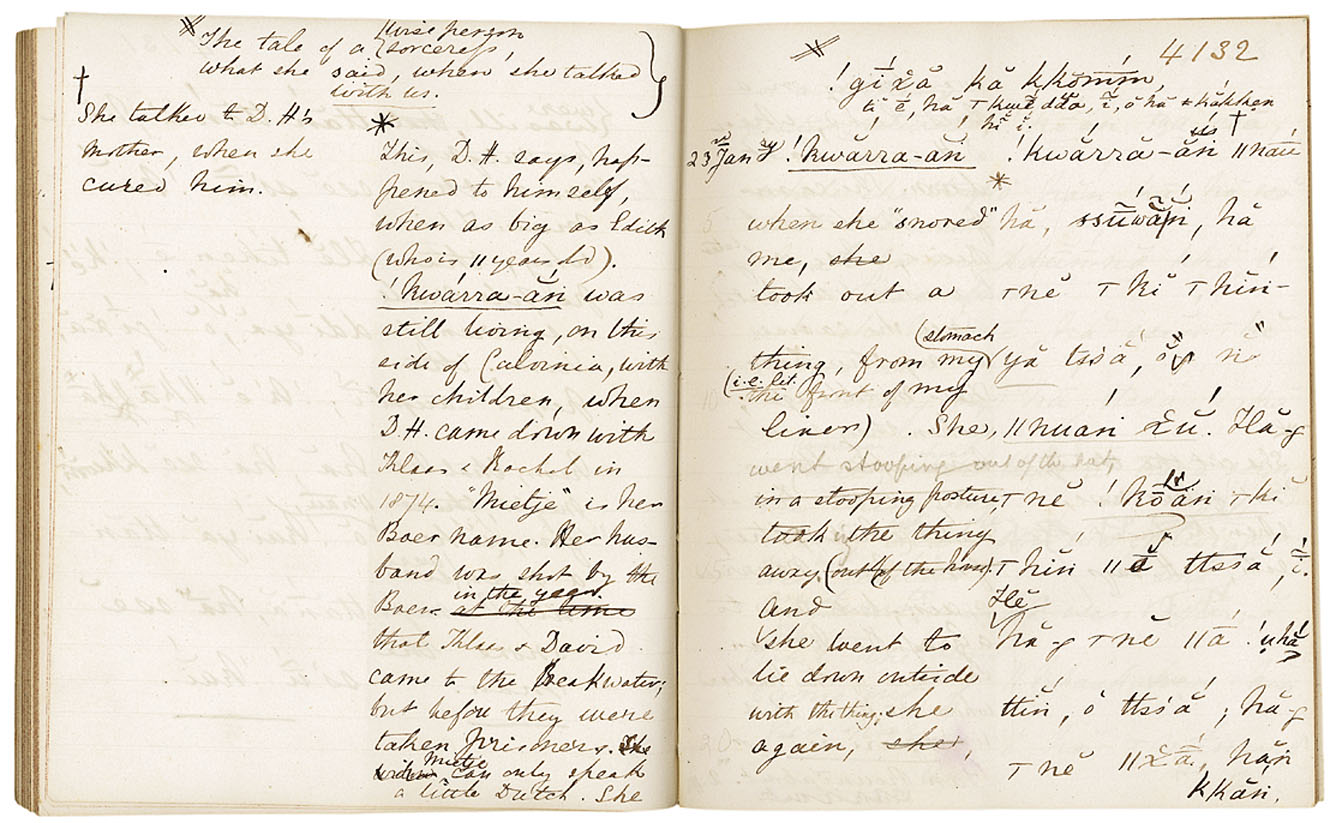 The tale of a {wise person
sorceress,
what she said, when she talked
with us.
†
She talked to D. H's
mother, when she
cured him.
*
This, D. H. says, hap-
pened to himself,
when as big as Edith
(who is 11 years old).
!kwárra-ăń was
still living, on this
side of Calvinia, with
her children, when
D.H. came down with
Klaas & Rachel in
1874. "Mietje" is her
Boer name. Her hus-
band was shot by the
Boers in the year
at the time
that Klaas & David
came to the Breakwater;
but before they were
taken prisoners. She
Mietje
can only speak
a little Dutch. She
4132
!gī x̆ā kā kkŏmm,
23 Jan ry !kwárra-ăń !kwárrā-ăń ||nau
*
5 when she "snored" hă, ssūwāń, hă
me, she
took out a ⊤nĕ ⊤kí ⊤hín-
(stomach
thing, from my yă tssā́,
(i.e. lit.
10 the front of my
liver). She, ||nuań x̆ŭ. Hă-g
went stooping out of the hut,
in a stooping posture, ⊤nĕ !kŏăń ⊤kí
took the thing
away (out of the house) ⊤hín || ttssā́, ī.
and Hĕ
she went to hă-g ⊤nĕ ||ā́ !uhă
lie down outside
with the thing; she ttin, ŏ ttss'ā́; hă-g
again, she, ⊤nĕ ||x̆ā́, hăń
kkăń,